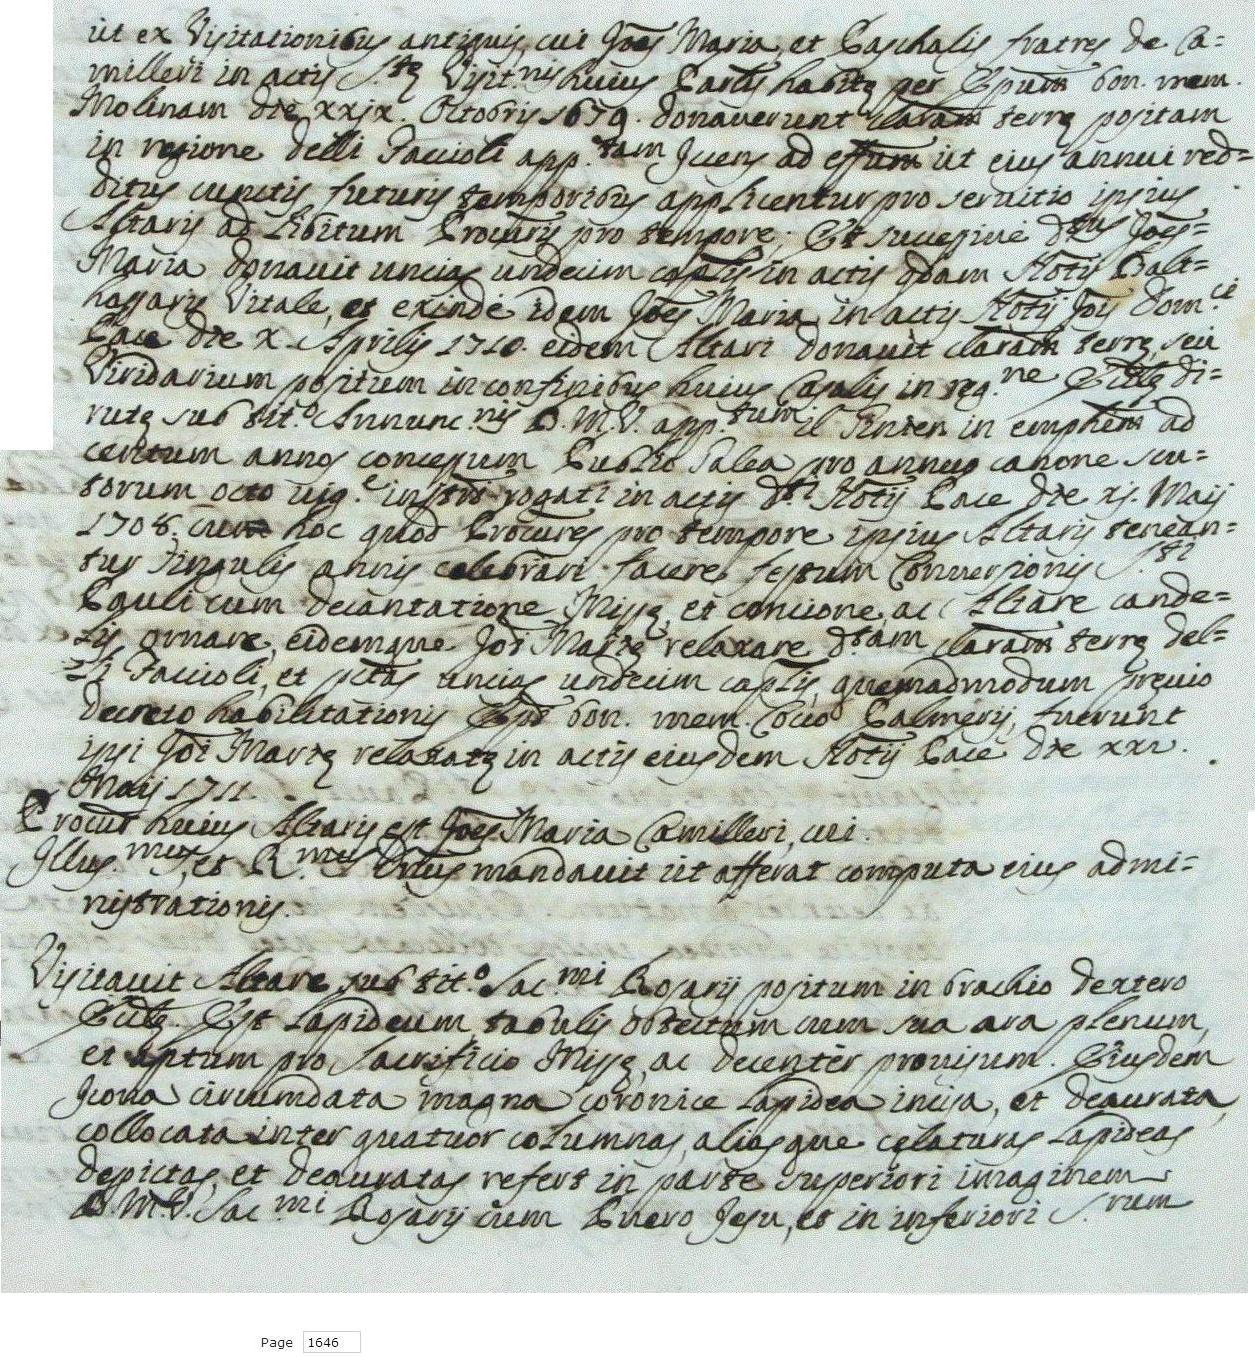 ut ex Visitationibus antiquis, cui Joēs Maria, et Paschalis fratres de Ca=
milleri in actis S.tę Visit.nis huius Parlis habitę per Ep̄um bon. mem.
Molinam die xxix. Octobris 1679. donauerunt claram̄ terrę positam
in regione delli Faccioli app.tam Jcens ad effum̄ ut eius annui red=
ditus cunctis futuris temporibus applicentur pro seruitio ipsius
Altaris ad libitum Procuris pro tempore; Et succesiue dtus Joēs=
Maria donauit uncias undecim capl̄is in actis qdam Notij Balt=
hassaris Vitale, et exinde idem Joēs Maria in actis Notij Jois Dom.ci
Pace die X. Aprilis 1710. eidem Altari donauit claram̄ terrę, seu
Viridarium positum in confinibus huius Casalis in reg.ne Ecclę di=
rutę sub tit.o Annunc.nis B.M.V. app.tum il in emphem̄ ad
centum annos concessum Publio Galea pro annuo canone scu=
torum octo uig.e insti rogati in actis dti Notij Pace die xj. Maij
1708. cum hoc quod Procures pro tempore ipsius Altaris tenean=
tur singulis annis celebrari facere festum Conuersionis S.ti
Pauli cum decantatione Missę, et concione, ac Altare cande=
lis ornare, eidemque Joi Marię relaxare d.tam claram̄ terrę del=
=li Faccioli, et ptas uncias undecim capl̄is, quemadmodum preuio
decreto habilitationis Epi bon. mem. Cocco Palmerij, fuerunt
ipsi Joi Marię relaxatę in actis eiusdem Notij Pace die xxi.
Maij 1711.
Procur̄ huius Altaris est Joēs Maria Camilleri, cui.
Jllus.mus, et R.mus Dnus mandauit ut afferat computa eius admi=
nistrationis.
Visitauit Altare sub tit.o Sac.mi Rosarij positum in brachio dextero
Ecclę. Est lapideum tabulis obtectum cum sua ara plenum,
et aptum pro Sacrificio Missę, ac decenter prouisum. Eiusdem
Jcona circumdata magna coronice lapidea incisa, et deaurata,
collocata inter quatuor columnas, aliasque celaturas lapideas
depictas, et deauratas refert in parte superiori imaginem
B.M.V. Sac.mi Rosarij cum Puero Jesu, et in inferiori S.rum
Page 1646